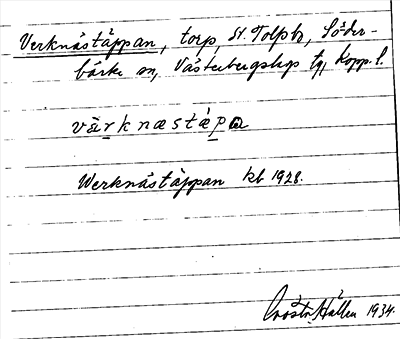 Verknästäppan, torp, St. Tolpbo, Söder-
bärke sn, Västerbergslags tg, Kopp. l.
värknæstäpa
Werknästäppan kb 1928.
Hällen 1934.